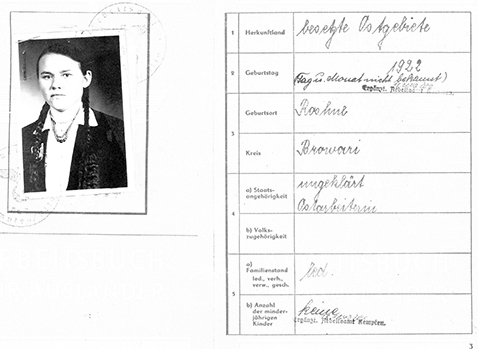 1 Herkunftland besetzte Ostgebiete
2 Geburtstag 1922
(Tag u. Monat nicht bekannt)
Ergänzt. Arbeitsamt
3 Geburtsort
Kreis Browari
4 a) Staats-
angehörigkeit
ungeklärt
Ostarbeiterin
b) Volks-
zugehörigkeit
5 a)
Familienstand
led., verh.,
verw., gesch.
led.
b) Anzahl
der minder-
jährigen
Kinder
keine
Ergänzt. Arbeitsamt Kempten.
3